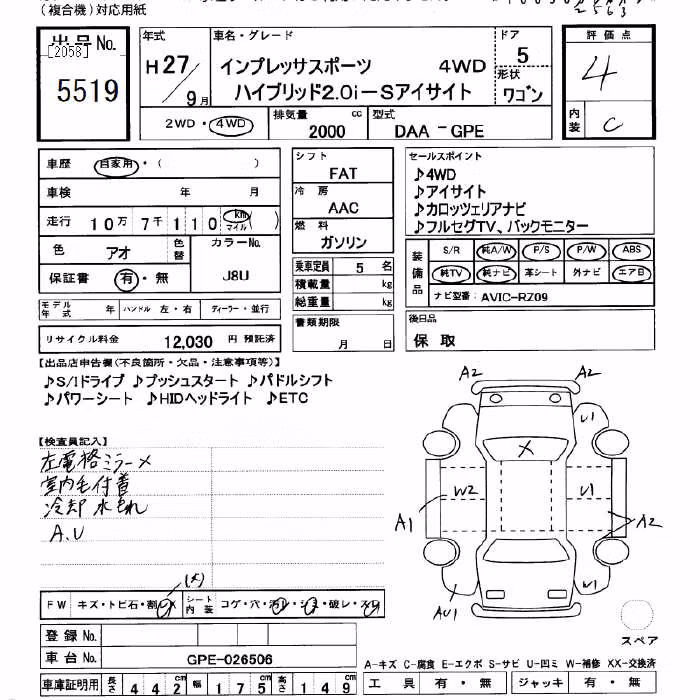 (複合機)対応用紙
出品No.
[2058]
5519
年式
H27/9月
車名・グレード
インプレッサスポーツ 4WD
ハイブリッド2.0i-Sアイサイト
ドア
5
形状
ワゴン
2WD・4WD
排気量 cc
2000
型式
DAA -GPE
評価点
4
内装
C
車歴 自家用・( )
車検 年 月
走行 10万7千110 km マイル ( )
色 アオ 色替
カラーNo.
J8U
保証書 有・無
モデル年式 年 ハンドル 左・右 ディーラー・並行
リサイクル料金 12,030 円 預託済
シフト
FAT
冷房
AAC
燃料
ガソリン
乗車定員 5 名
積載量 kg
総重量 kg
書類期限
月 日
セールスポイント
♪4WD
♪アイサイト
♪カロッツェリアナビ
♪フルセグTV、バックモニター
装備品
S/R 純A/W P/S P/W ABS
純TV 純ナビ 革シート 外ナビ エアB
ナビ型番: AVIC-RZ09
後日品
保 取
【出品店申告欄(不良箇所・欠品・注意事項等)】
♪S/Iドライブ ♪プッシュスタート ♪パドルシフト
♪パワーシート ♪HIDヘッドライト ♪ETC
【検査員記入】
左電格ミラーメ
室内毛付着
冷却水もれ
A.U
(メ)
FW キズ・トビ石・割・X シート内装 コゲ・穴・汚レ・シミ・破レ・スレ
登録No.
車台No. GPE-026506
車庫証明用 長さ 442 cm 幅 175 cm 高さ 149 cm
A2 A2
U1
X
W2 U1
A1 A2
AU1
スペア
A-キズ C-腐食 E-エクボ S-サビ U-凹ミ W-補修 XX-交換済
工具 有・無 ジャッキ 有・無